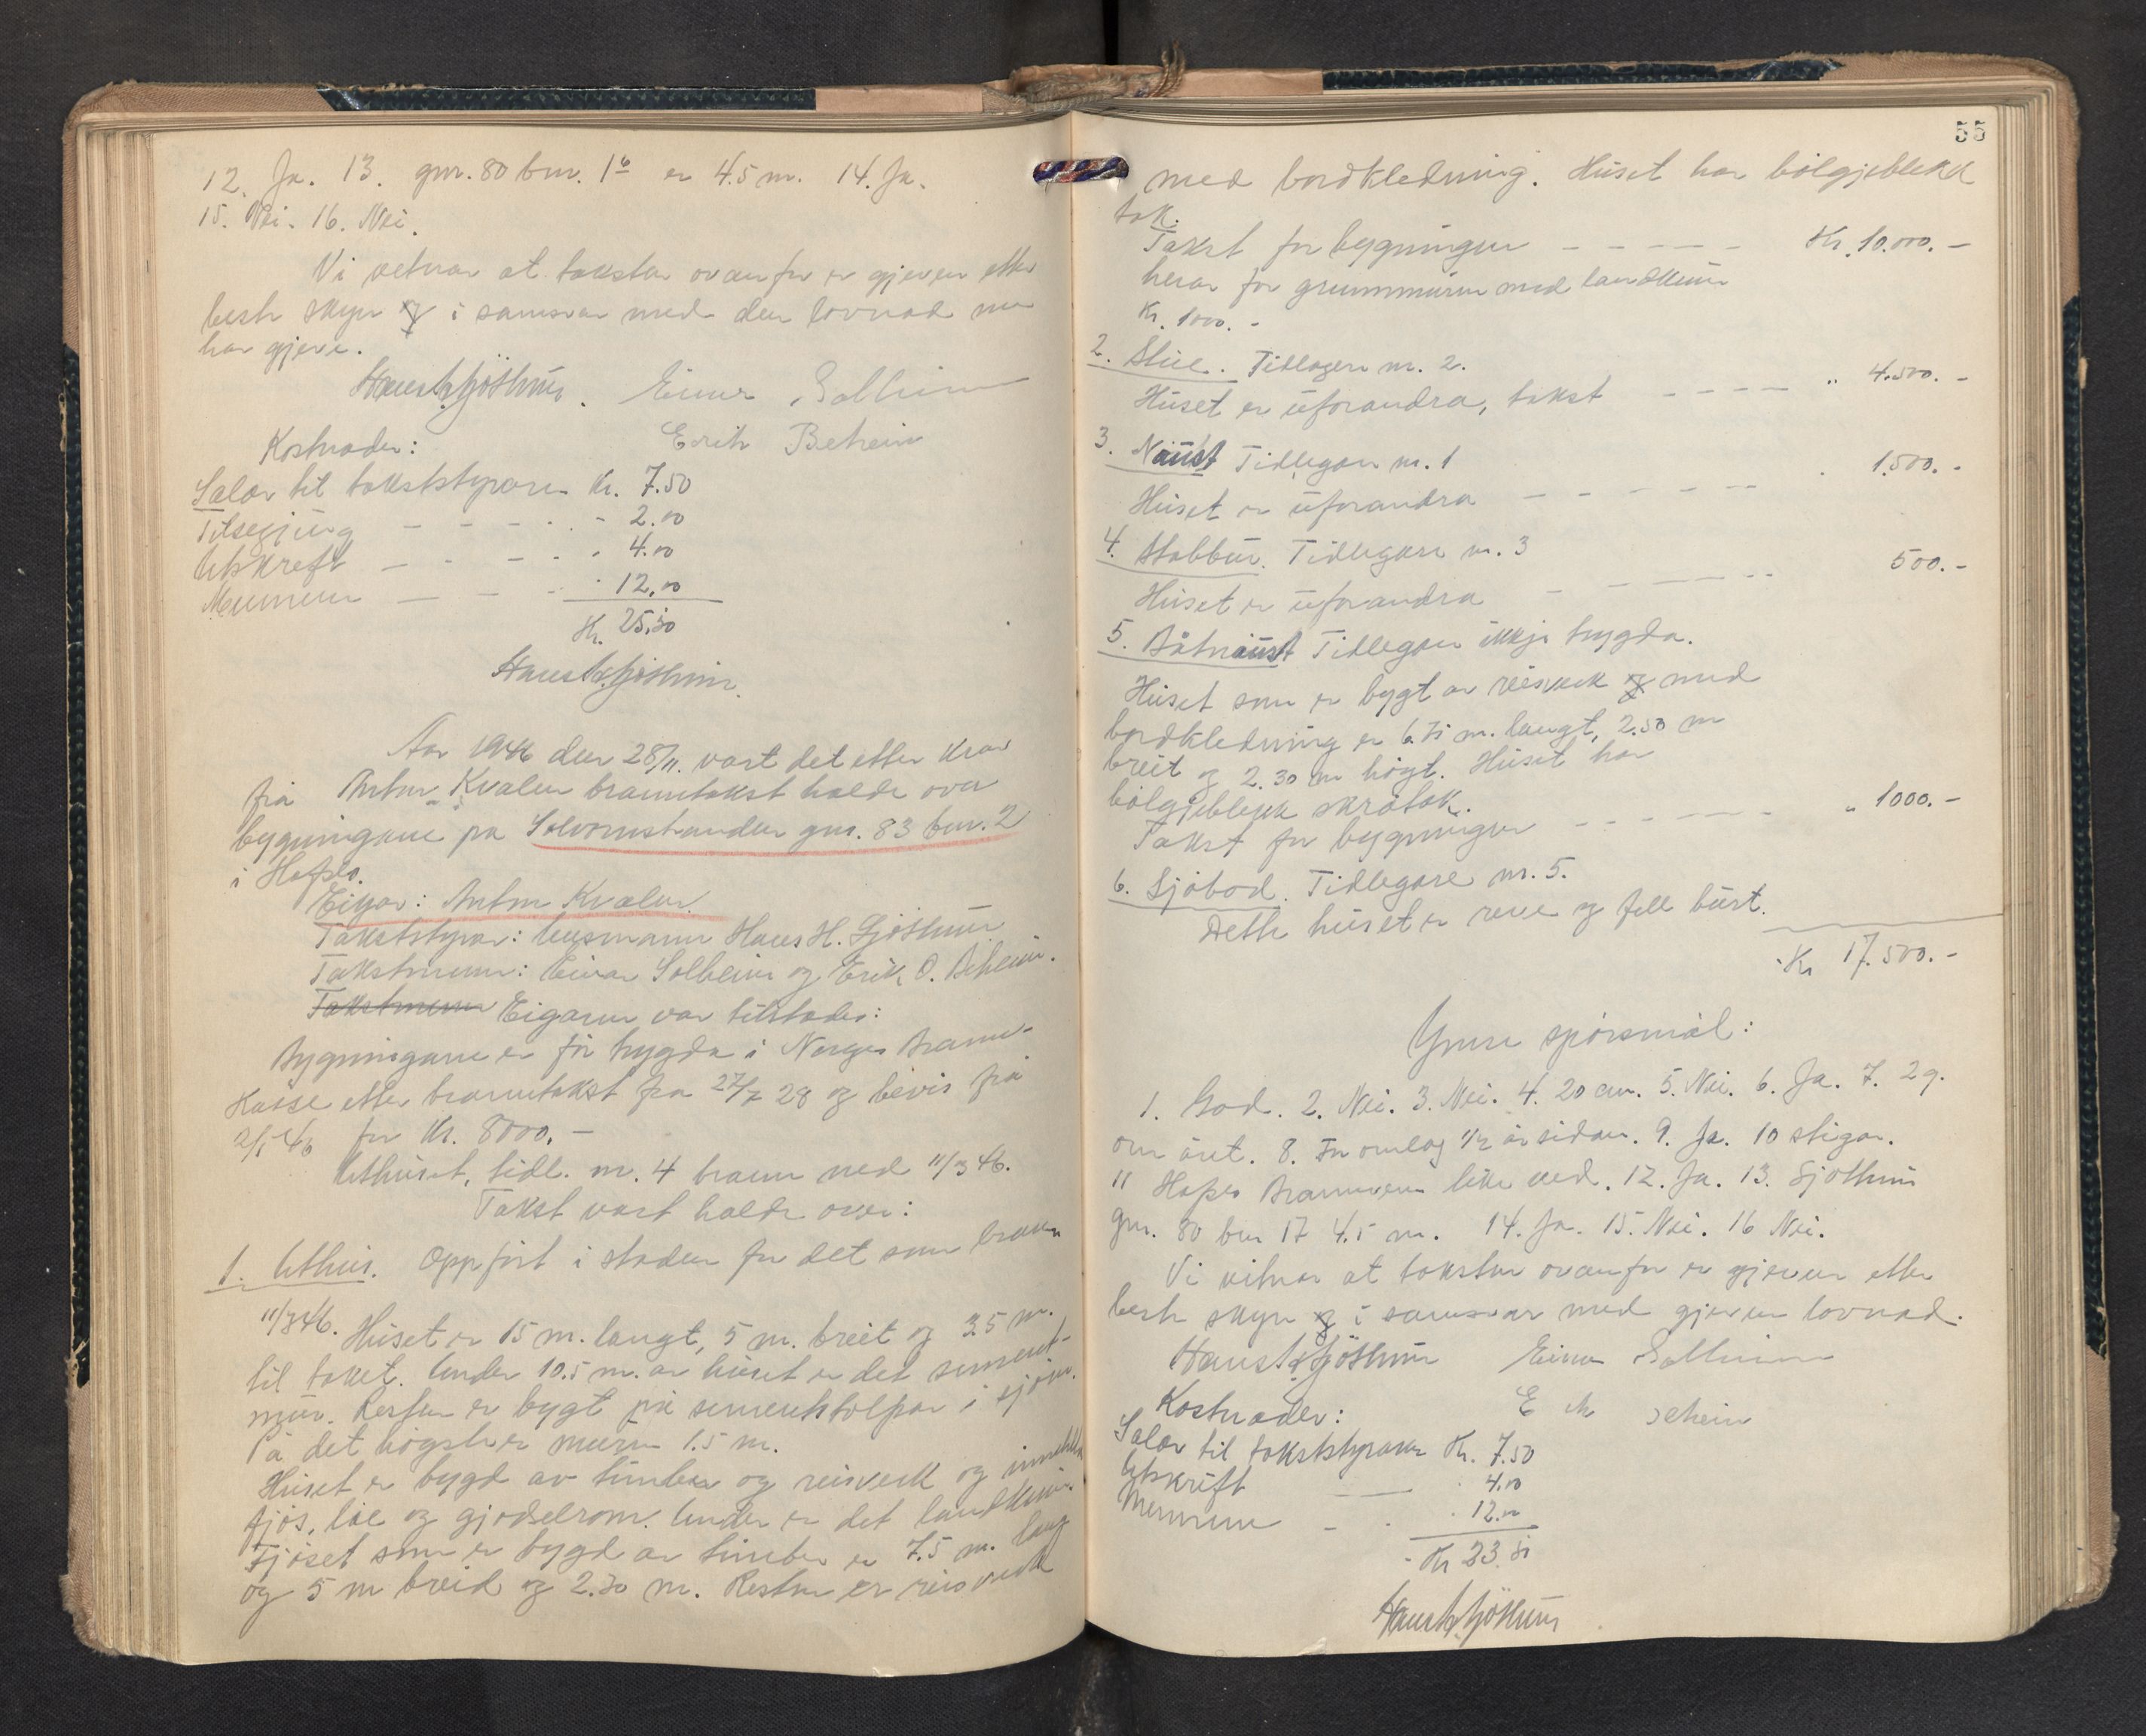 12. Ja. 13. gnr. 80 bnr. 16 er 4.5 m. 14. Ja.
15. Nei. 16. Nei.
Vi vitnar at takstar ovanfor er gjeven etter
beste skyn og i samsvar med den lovnad me
har gjeve.
Hans H. Sjøthun. Einar Solheim
Kostnader: Erik Beheim
Salær til takststyraren Kr. 7.50
Tilsegjing - - - - 2.00
Utskrift - - - - 4.00
Mennene - - - 12.00
Kr. 25.50
Hans H. Sjøthun.
Aar 1946 den 28/11. vart det etter krav
frå Anton Kvalen branntakst halde over
bygningane på Solvornstranden gnr. 83 bnr. 2
i Hafslo.
Eigar: Anton Kvalen.
Takststyrar: lensmann Hans H. Sjøthun
Takstmenn: Einar Solheim og Erik O. Beheim.
Takstmenn Eigaren var tilstades:
Bygningane er før trygda i Norges Brann-
kasse etter branntakst frå 27/7 28 og bevis frå
2/5 46 for Kr. 8000.-
Uthuset, tidl. nr. 4 brann ned 11/3 46.
Takst vart halde over:
1. Uthus. Oppført i staden for det som brann
11/3 46. Huset er 15 m. langt, 5 m. breit og 3.5 m.
til taket. Under 10.5 m. av huset er det sement-
mur. Resten er bygt på sementstolpar i sjøen.
På det høgste er muren 1.5 m.
Huset er bygd av timber og reisverk og inneheld
fjøs, løe og gjødselrom. Under er det landkjeller.
Fjøset som er bygd av timber er 7.5 m. lang
og 5 m breid og 2.30 m. Resten er reisverk
55
med bordkledning. Huset har bølgjeblekk
tak.
Takst for bygningen - - - - - Kr. 10.000.-
herav for grunnmuren med landkjeller
Kr. 1000.-
2. Stue. Tidlegare nr. 2.
Huset er uforandra, takst - - - - " 4.500.-
3. Naust Tidlegare nr. 1
Huset er uforandra - - - - - - 1.500.-
4. Stabbur. Tidlegare nr. 3
Huset er uforandra - - - - - 500.-
5. Båtnaust Tidlegare ikkje trygda.
Huset som er bygt av reisverk og med
bordkledning er 6.75 m. langt, 2.50 m
breit og 2.30 m høgt. Huset har
bølgjeblekk skråtak.
Takst for bygningen - - - - - " 1000.-
6. Sjøbod. Tidlegare nr. 5.
Dette huset er reve og fell burt.
Kr 17.500.-
Ymse spørsmål:
1. God. 2. Nei. 3. Nei. 4. 20 cm. 5. Nei. 6. Ja. 7. 2 g.
om året. 8. For omlag 1/2 år sidan. 9. Ja. 10 stigar.
11 Hafslo Brannvern like ved. 12. Ja. 13. Sjøthun
gnr. 80 bnr 17 4.5 m. 14. Ja. 15. Nei. 16 Nei.
Vi vitnar at takstar ovanfor er gjeven etter
beste skyn og i samsvar med gjeven lovnad.
Hans H. Sjøthun Einar Solheim
Kostnader: E ik eheim
Salær til takststyraren Kr. 7.50
Utskrift - 4.00
Mennene - - 12.00
Kr 23.50
Hans H. Sjøthun